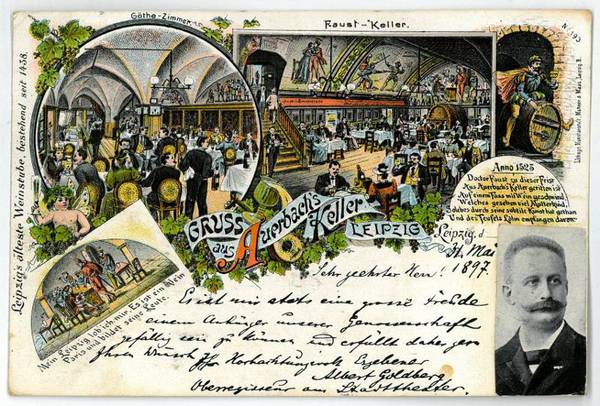 Göthe-Zimmer.
Faust-Keller.
Nº 193
Leipzig's älteste Weinstube, bestehend seit 1438.
Anno 1525
Doctor Faust zu dieser Frist
Aus Auerbachs Keller geritten ist
Auf einem Fass mit Wein geschwind,
Welches gesehen viel Mutterkind,
Solches durch seine subtile Kunst hat gethan
Und des Teufels Lohn empfangen davon.
GRUSS
aus
Auerbach's
Keller
LEIPZIG
Leipzig, d.
31. Mai
1897.
Mein Leipzig lob' ich mir! Es ist ein klein
Paris und bildet seine Leute.
Sehr geehrter Herr!
Es ist mir stets eine grosse Freude
einem Anhänger unserer Genossenschaft
gefällig sein zu können und erfüllt daher gern
Ihren Wunsch Ihr Hochachtungsvoll Ergebener
Albert Goldberg
Oberregisseur am Stadttheater.